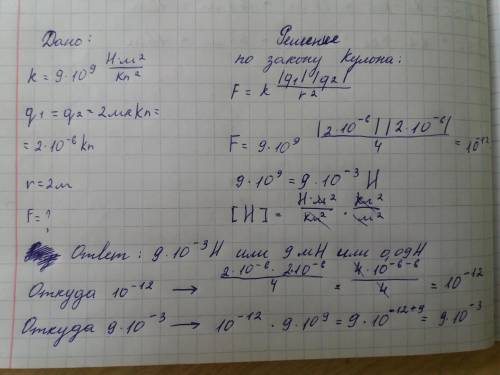 Дано:
k = 9·10⁹ Н·м²/Кл²
q₁ = q₂ = 2мкКл =
= 2·10⁻⁶ Кл
r = 2м
F = ?
Решение
по закону Кулона:
F = k |q₁||q₂| / r²
F = 9·10⁹ |2·10⁻⁶||2·10⁻⁶| / 4 = 10⁻¹²
9·10⁹ = 9·10⁻³ Н
[Н] = Н·м²/Кл² · Кл²/м²
Ответ: 9·10⁻³Н или 9мН или 0,09Н
Откуда 10⁻¹² → 2·10⁻⁶·2·10⁻⁶ / 4 = 4·10⁻⁶⁻⁶ / 4 = 10⁻¹²
Откуда 9·10⁻³ → 10⁻¹²·9·10⁹ = 9·10⁻¹²⁺⁹ = 9·10⁻³